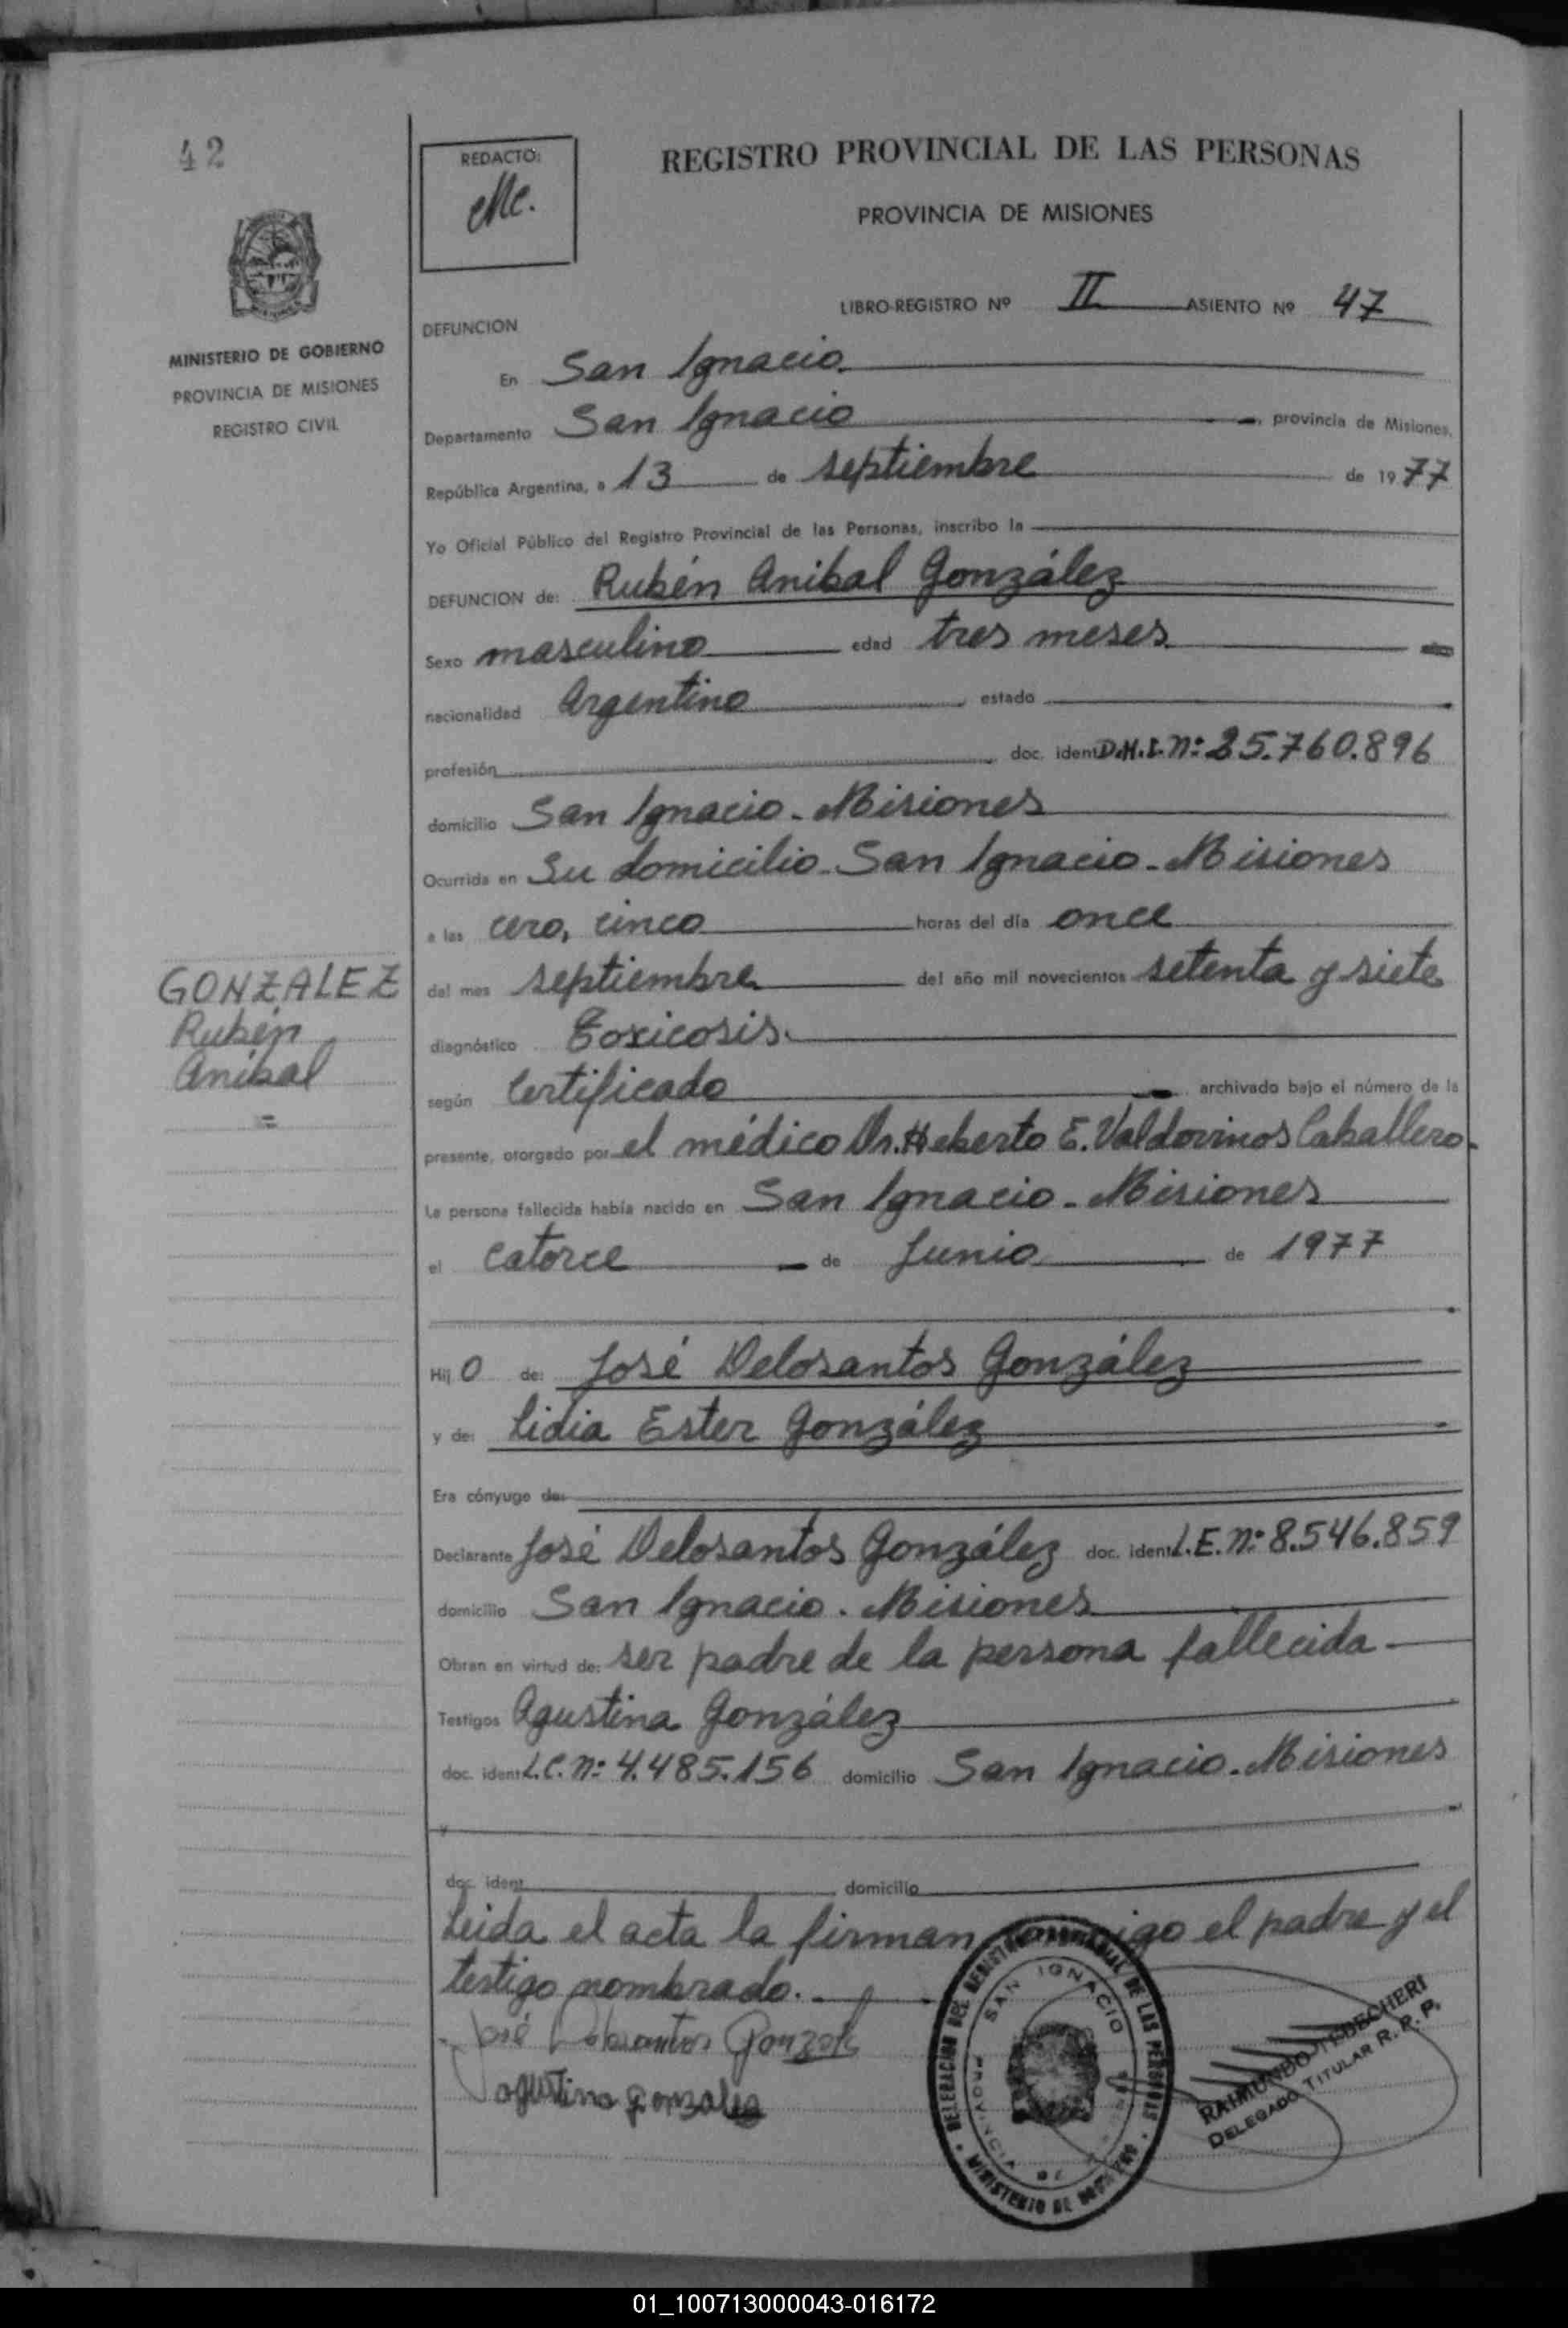 42
REDACTO:
REGISTRO PROVINCIAL DE LAS PERSONAS
PROVINCIA DE MISIONES
LIBRO-REGISTRO Nº II ASIENTO Nº 47
MINISTERIO DE GOBIERNO
PROVINCIA DE MISIONES
REGISTRO CIVIL
DEFUNCION
En San Ignacio.
Departamento San Ignacio, provincia de Misiones,
República Argentina, a 13 de septiembre de 1977
Yo Oficial Público del Registro Provincial de las Personas, inscribo la
DEFUNCION de: Rubén Anibal González
Sexo masculino edad tres meses
nacionalidad Argentino, estado
profesión, doc. ident D.N.I. Nº: 25.760.896
domicilio San Ignacio - Misiones
Ocurrida en Su domicilio - San Ignacio - Misiones
a las cero, cinco horas del día once
GONZALEZ
Rubén
Anibal
=
del mes septiembre del año mil novecientos setenta y siete
diagnóstico Toxicosis.
según Certificado archivado bajo el número de la
presente, otorgado por el médico Dr. Heberto E. Valdovinos Caballero.
La persona fallecida había nacido en San Ignacio - Misiones
el catorce de Junio de 1977
Hij o de: José Delosantos González
y de: Lidia Ester González
Era cónyuge de:
Declarante José Delosantos González doc. ident L.E. Nº: 8.546.859
domicilio San Ignacio. Misiones
Obran en virtud de: ser padre de la persona fallecida
Testigos Agustina González
doc. ident L.C. Nº: 4.485.156 domicilio San Ignacio - Misiones
y
doc. ident domicilio
Leida el acta la firman conmigo el padre y el
testigo nombrado.
José Delosantos Gonzalez
agustina gonzalez
DELEGACION DEL REGISTRO PROVINCIAL DE LAS PERSONAS
SAN IGNACIO
PROVINCIA DE MISIONES
MINISTERIO DE GOBIERNO
RAIMUNDO
DELEGADO TITULAR R. P. P.
01_100713000043-016172